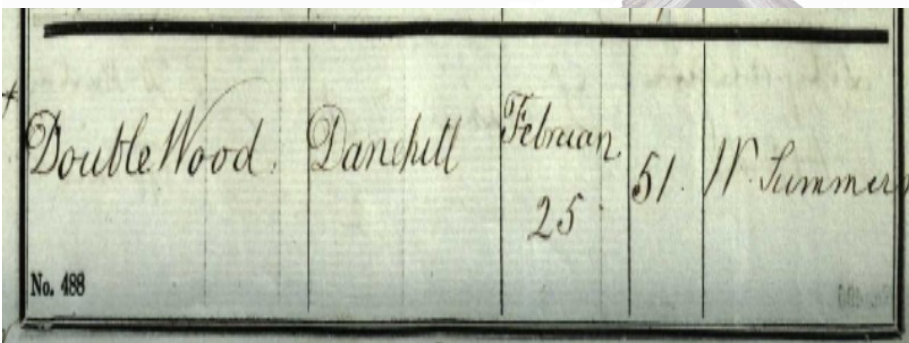 Double Wood. Danehill Februan 51. W. Summers
25
No. 488